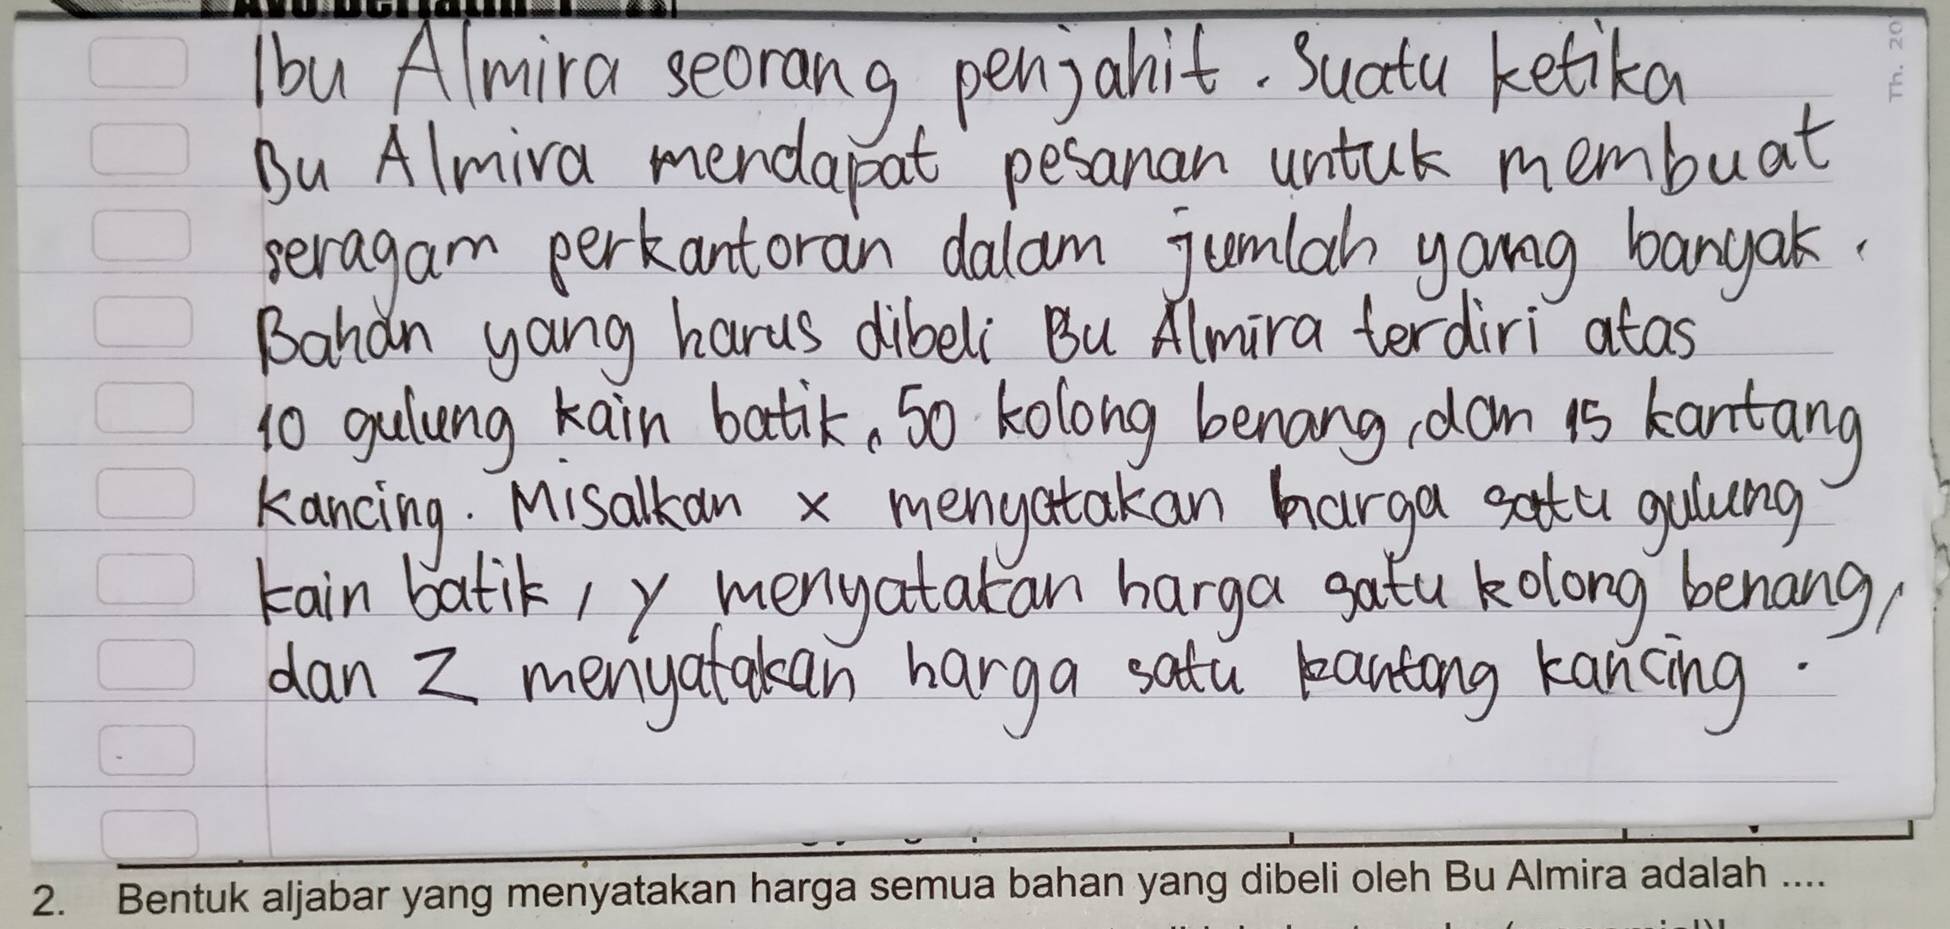 Ibu Almira seorang penjahit. Suatu ketika
Bu Almira mendapat pesanan untuk membuat
seragam perkantoran dalam jumlah yang banyak.
Bahan yang harus dibeli Bu Almira terdiri atas
10 gulung kain batik, 50 kolong benang, dan 15 kantang
kancing. Misalkan x menyatakan harga satu gulung
kain batik, y menyatakan harga satu kolong benang,
dan z menyatakan harga satu kantong kancing.
Th. 20
2. Bentuk aljabar yang menyatakan harga semua bahan yang dibeli oleh Bu Almira adalah ....